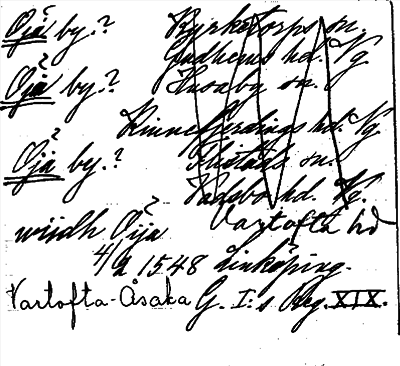 Öjä by.? Kyrketorps sn.
Gudhems hd. Vg.
Öjä by.? Husaby sn.
Kinnefjerdings hd. Vg
Öjä by.? sn.
Vadsbo hd. Vg.
wiidh Öija Vartofta hd
4/2 1548 Linköping.
Vartofta-Åsaka G. I:s Reg. XIX.